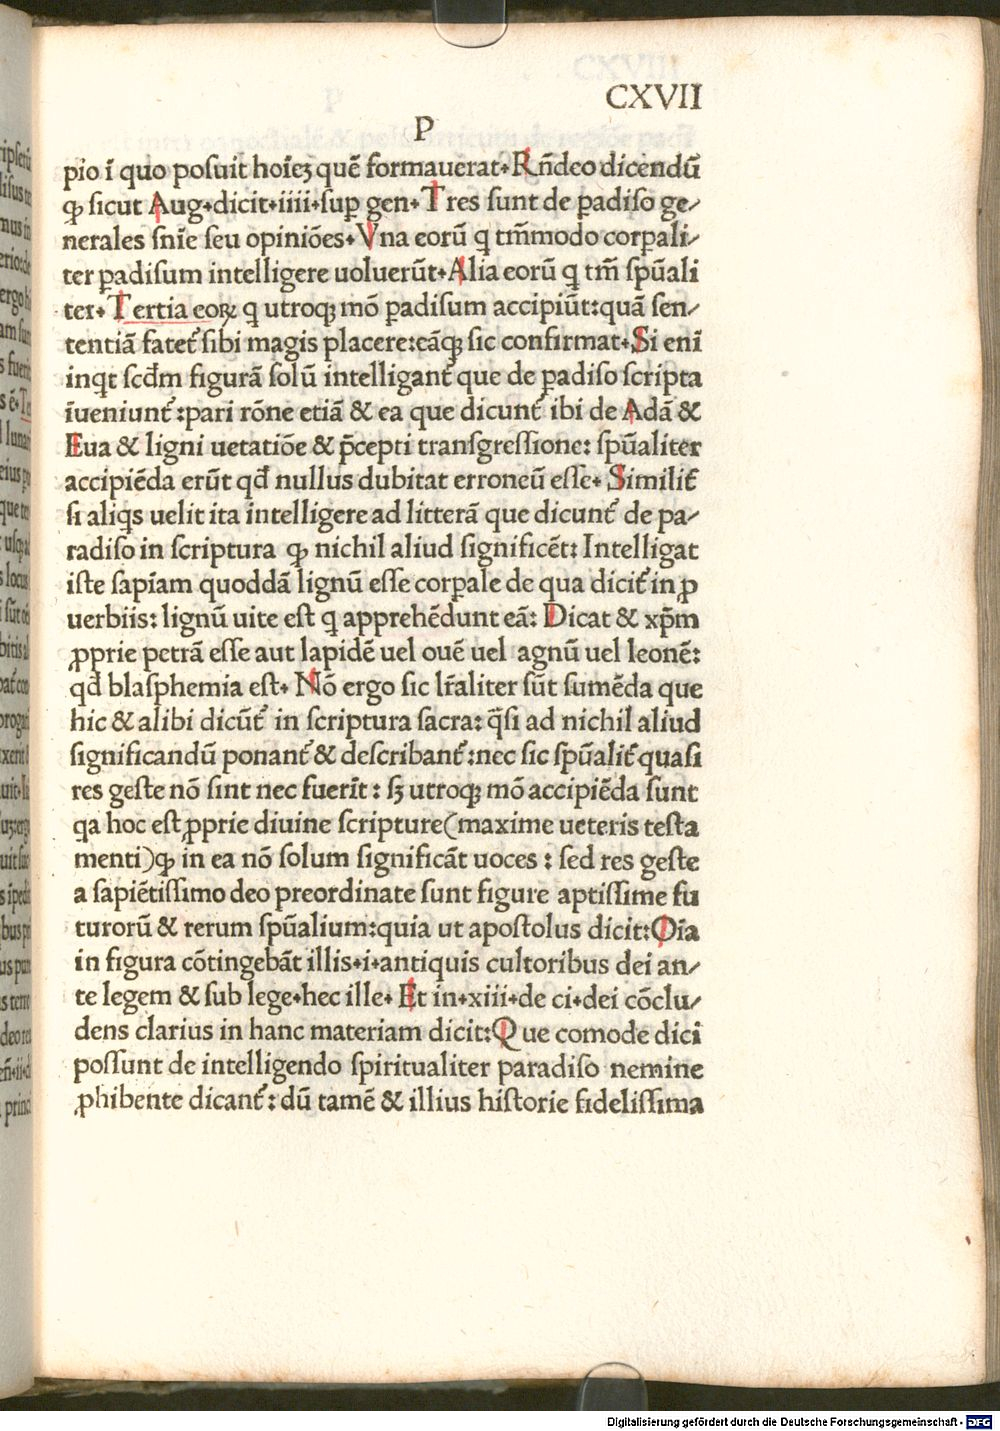 CXVII
P
pio ī quo poſuit hoīeꝫ quē formauerat. Rñdeo dicendū
ꝙ ſicut Aug.dicit.iiii.ſuꝑ gen. Tres ſunt de ꝑadiſo ge/
nerales ſnīe ſeu opiniōes. Vna eorū q tm̄modo corꝑali/
ter ꝑadiſum intelligere uoluerūt. Alia eorū q tm̄ ſpūali
ter. Tertia eoꝝ q utroqꝫ mō ꝑadiſum accipiūt:quā ſen/
tentiā fatet̉ ſibi magis placere:eāqꝫ ſic confirmat. Si eni
inqt ſcd̄m figurā ſolū intelligant̉ que de ꝑadiſo ſcripta
īueniunt̉:pari rōne etiā & ea que dicunt̉ ibi de Adā &
Eua & ligni uetatiōe & p̄cepti tranſgreſſione: ſpūaliter
accipiēda erūt qd̄ nullus dubitat erroneū eſſe. Similit̉
ſi aliqs uelit ita intelligere ad litterā que dicunt̉ de pa/
radiſo in ſcriptura ꝙ nichil aliud ſignificēt: Intelligat
iſte ſapīam quoddā lignū eſſe corꝑale de qua dicit̉ in ꝓ
uerbiis: lignū uite eſt q apprehēdunt eā: Dicat & xp̄m
ꝓprie petrā eſſe aut lapidē uel ouē uel agnū uel leonē:
qd̄ blaſphemia eſt. Nō ergo ſic lr̄aliter ſūt ſumēda que
hic & alibi dicūt̉ in ſcriptura ſacra: q̄ſi ad nichil aliud
ſignificandū ponant̉ & deſcribant̉:nec ſic ſpūalit̉ quaſi
res geſte nō ſint nec fuerīt : ſꝫ utroqꝫ mō accipiēda ſunt
qa hoc eſt ꝓprie diuine ſcripture(maxime ueteris teſta
menti)ꝙ in ea nō ſolum ſignificāt uoces : ſed res geſte
a ſapiētiſſimo deo preordinate ſunt figure aptiſſime fu
turorū & rerum ſpūalium:quia ut apoſtolus dicit:Oīa
in figura cōtingebāt illis.i.antiquis cultoribus dei an/
te legem & ſub lege.hec ille. Et in.xiii.de ci.dei cōclu/
dens clarius in hanc materiam dicit:Que comode dici
poſſunt de intelligendo ſpiritualiter paradiſo nemine
ꝓhibente dicant̉: dū tamē & illius hiſtorie fideliſſima
Digitalisierung gefördert durch die Deutsche Forschungsgemeinschaft - DFG